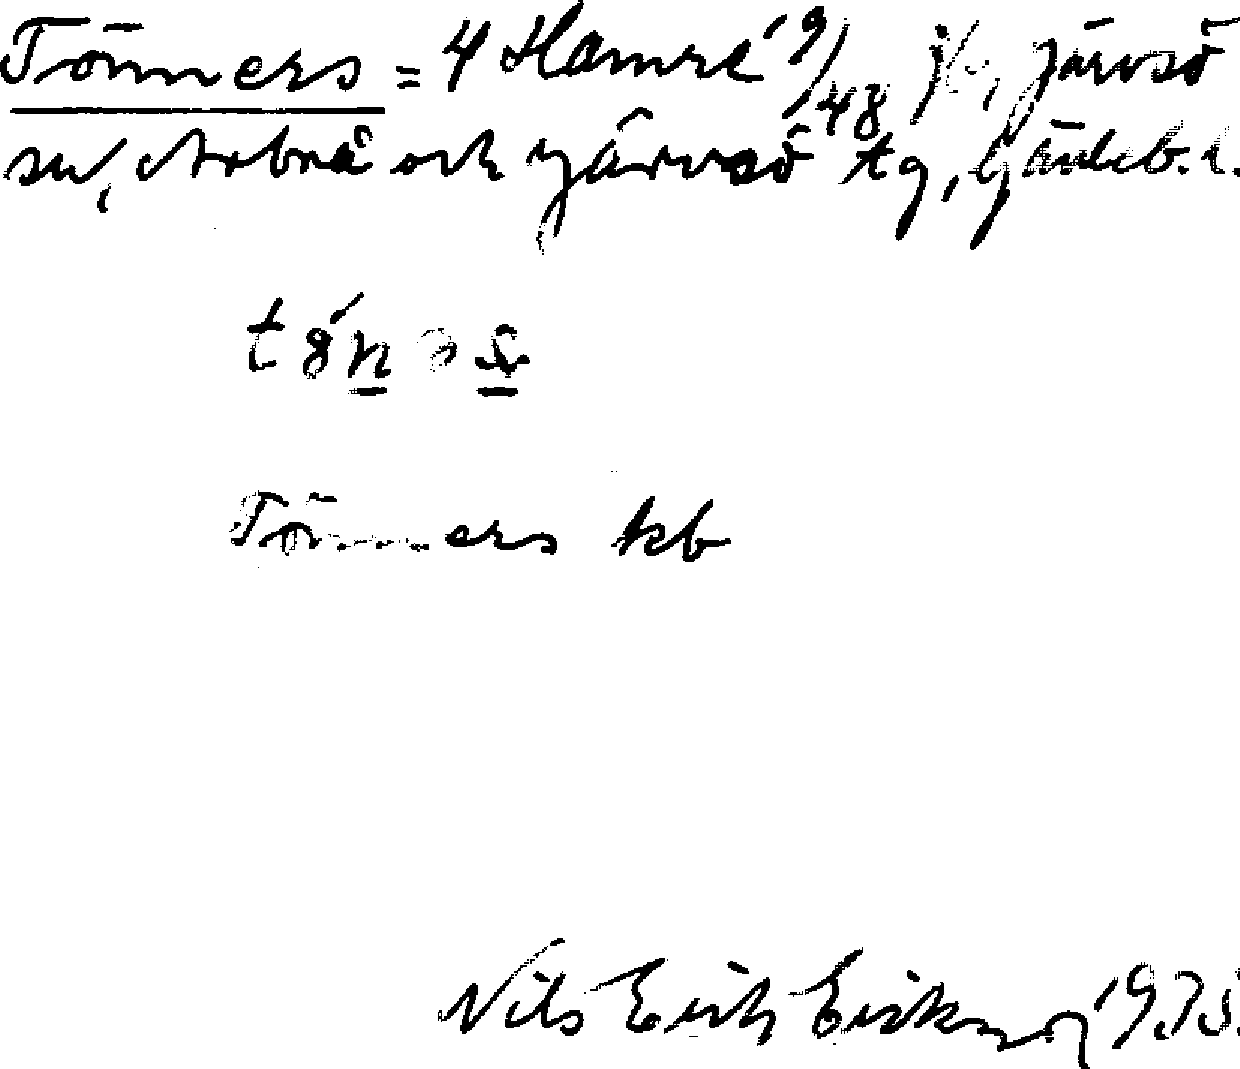 Tönners = 4 Hamre 9/48 j/, Järvsö
sn, Arbrå och Järvsö tg, Gävleb. l.
Tönners kb
Nils Erik Eriksson 1935.